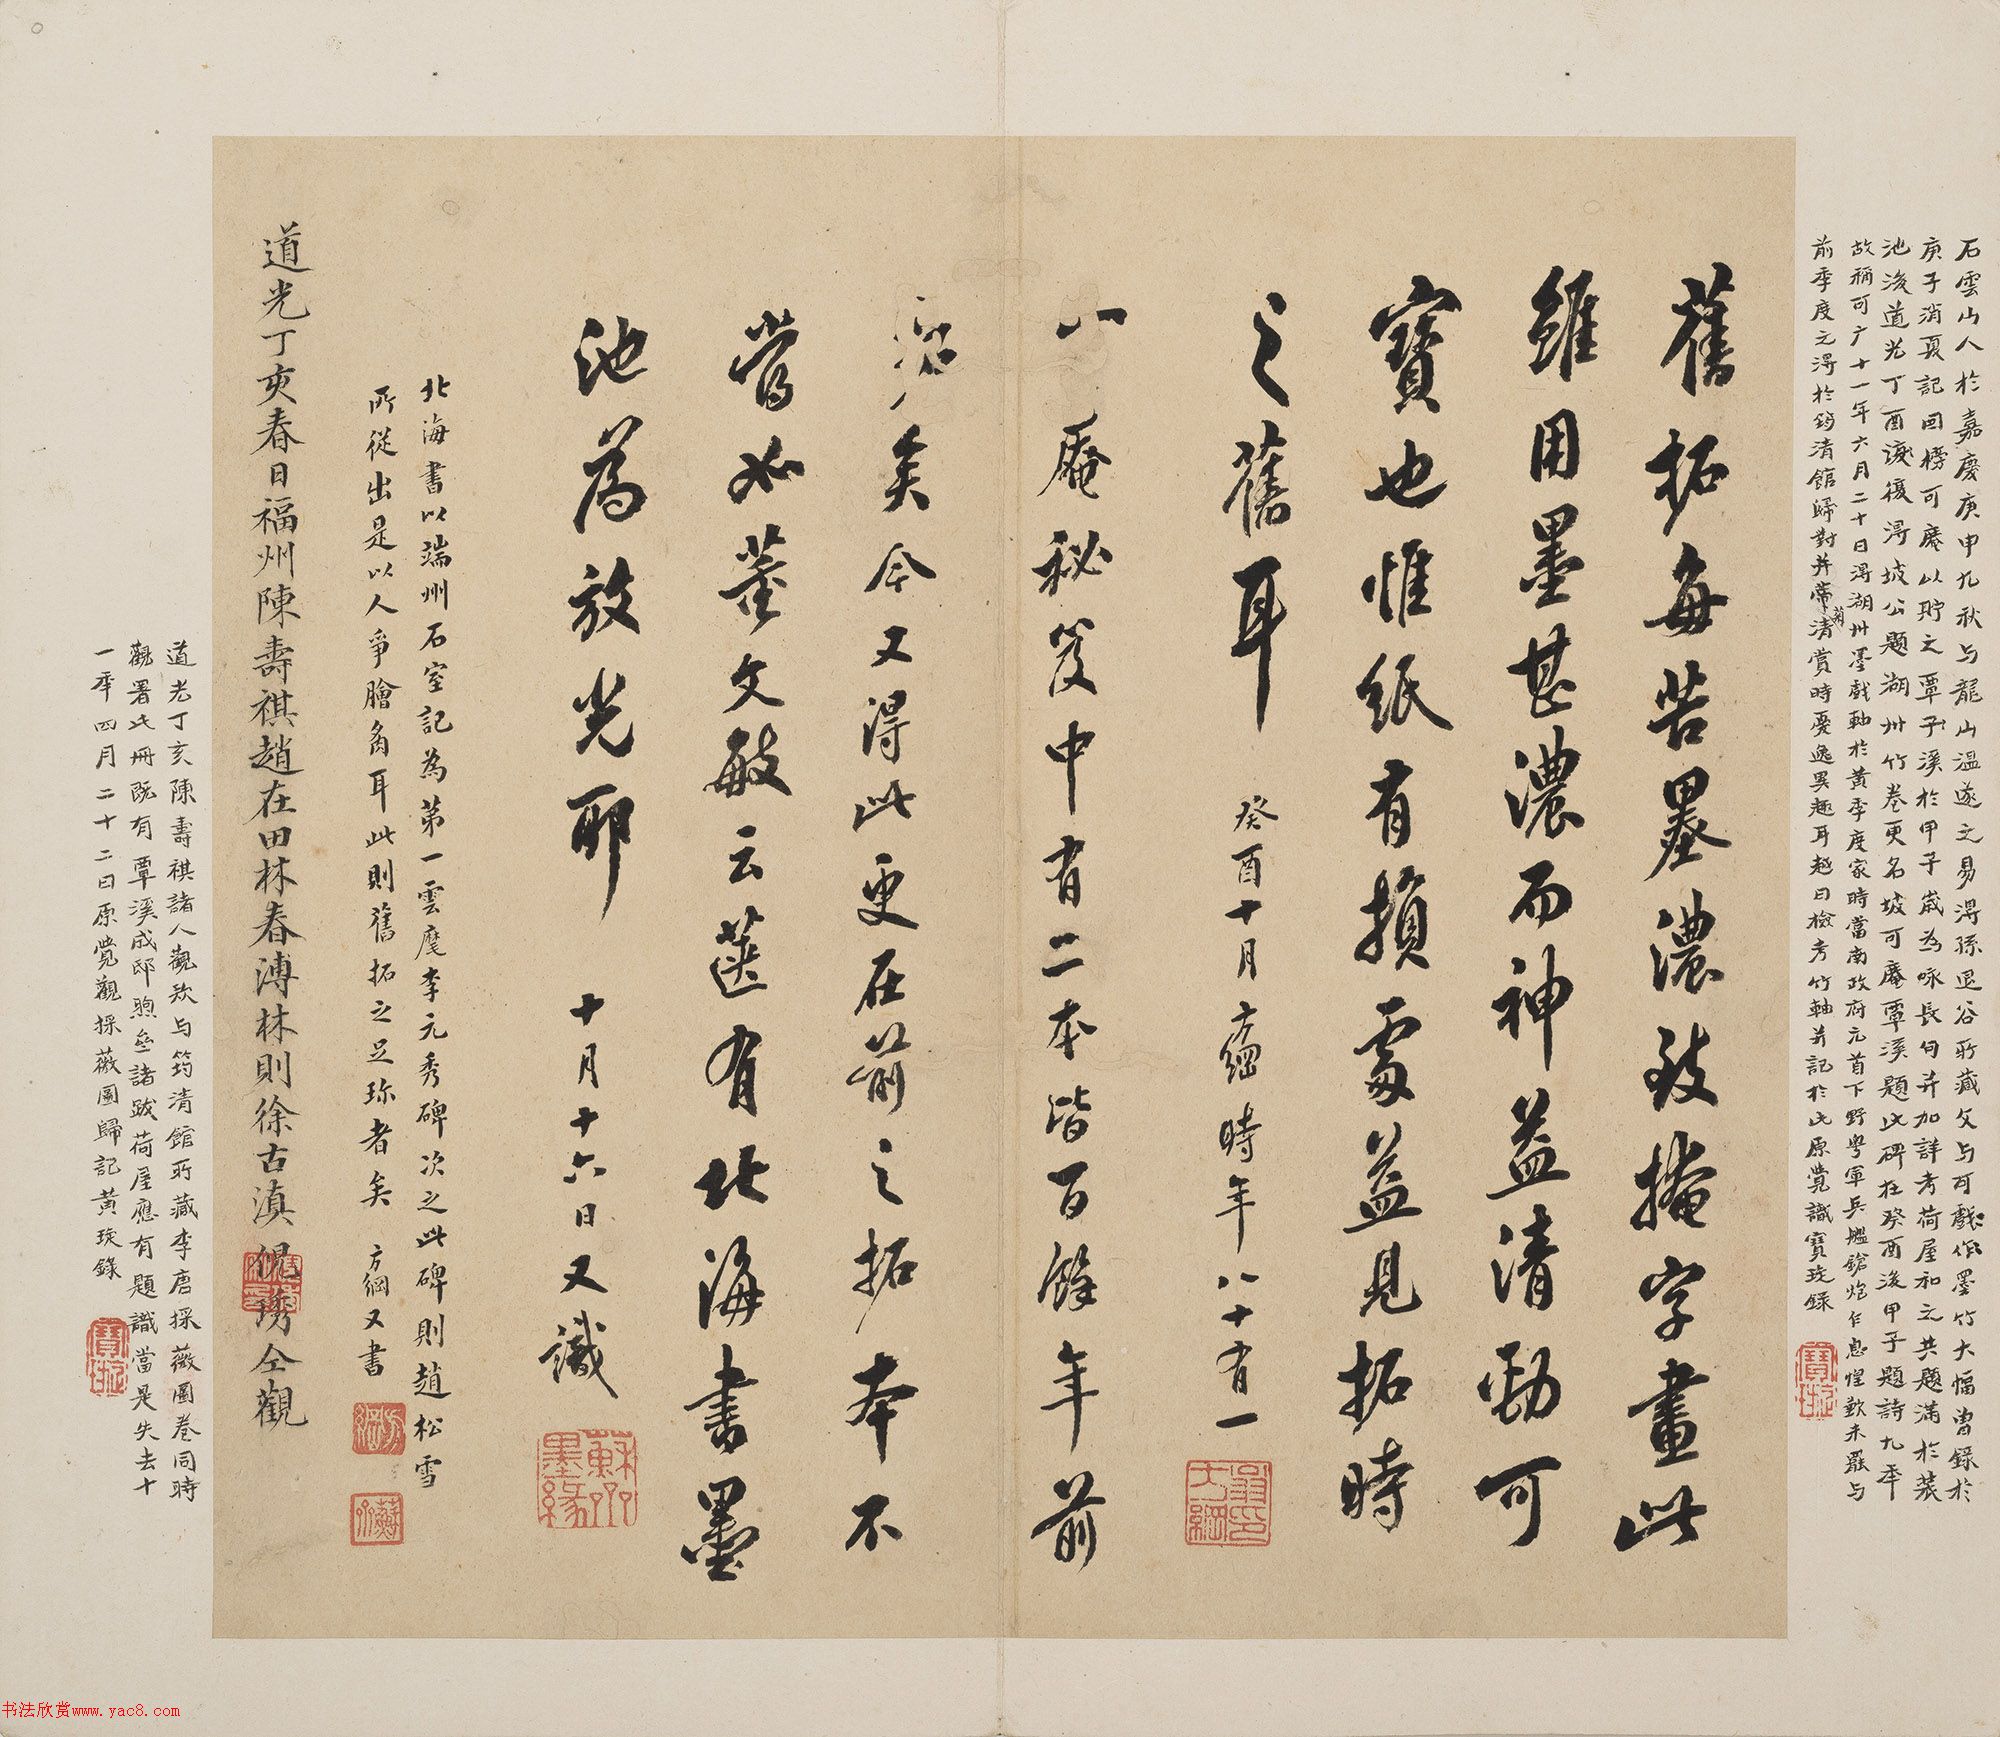 石雲山人於嘉慶庚申九秋与龍山溫遂之易得孫退谷所藏文与可戲作墨竹大幅曾錄於
庚子消夏記回榜可庵以貯之覃子溪於甲子歲為咏長句并加詳考荷屋和之共題滿於裝
池後道光丁酉復得坡公題湖州竹卷更名坡可庵覃溪題此碑在癸酉後甲子題詩九年
故稱可广十一年六月二十日得湖州墨戲軸於黃季度家時當南政府元首下野粵軍兵艦鎗炮乍息惶歎未罷与
前季度之得於筠清館歸對并蒂菊清賞時憂逸異趣耳越日檢考竹軸并記於此原覺識寶珽錄
舊拓每苦墨濃致掩字畫此
雖用墨甚濃而神益清勁可
寶也惟紙有損處益見拓時
之舊耳
癸酉十月方綱時年八十有一
翁方綱印
可庵秘笈中有二本皆百餘年前
矣今又得此更在前之拓本不
當如董文敏云篋有北海書墨
池為放光耶
十月十六日又識
蘇齋墨緣
北海書以端州石室記為第一雲麾李元秀碑次之此碑則趙松雪
所從出是以人爭膾炙耳此則舊拓之足珍者矣 方綱又書
方綱
道光丁亥春日福州陳壽祺趙在田林春溥林則徐古滇倪琇仝觀
道光丁亥陳壽祺諸人觀款与筠清館所藏李唐採薇圖卷同時
觀署此冊既有覃溪成邸煦齋諸跋荷屋應有題識當是失去十
一年四月二十二日原覺觀採薇圖歸記黃珽錄
书法欣赏www.yac8.com